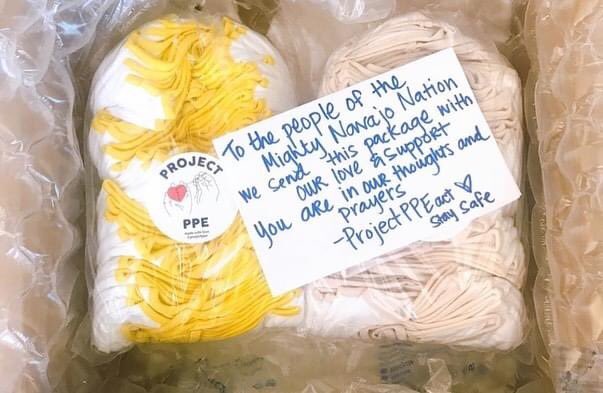 To the people of the
Mighty Navajo Nation
We send this package with
our love & support
You are in our thoughts and
Prayers
-ProjectPPEact ♡
Stay safe
PROJECT
PPE